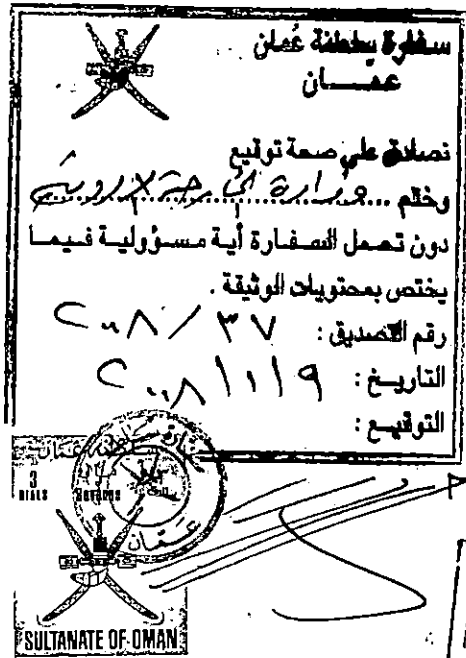 سفارة سلطنة عُمان
عمــــان
نصادق علي صحة توقيع
وختم ... وزارة الخارجية الاردنية
دون تحمل السفارة أية مسؤولية فيما
يختص بمحتويات الوثيقة .
رقم التصديق : ٣٧ / ٢٠٠٨
التاريخ : ٩ / ١ / ٢٠٠٨
التوقيع :
سلطنة عمان
3
RIALS
عمّان
SULTANATE OF OMAN